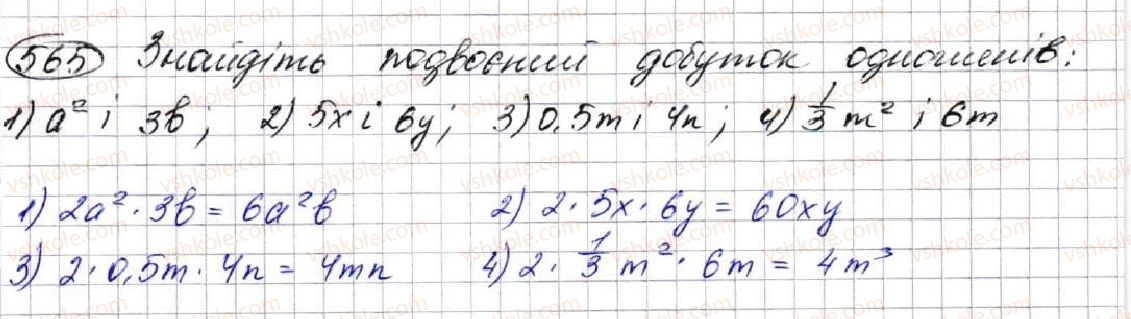 565 Знайдіть подвоєний добуток одночленів:
1) a² і 3b; 2) 5x і 6y; 3) 0,5m і 4n; 4) 1/3 m² і 6m
1) 2a² · 3b = 6a²b 2) 2 · 5x · 6y = 60xy
3) 2 · 0,5m · 4n = 4mn 4) 2 · 1/3 m² · 6m = 4m³